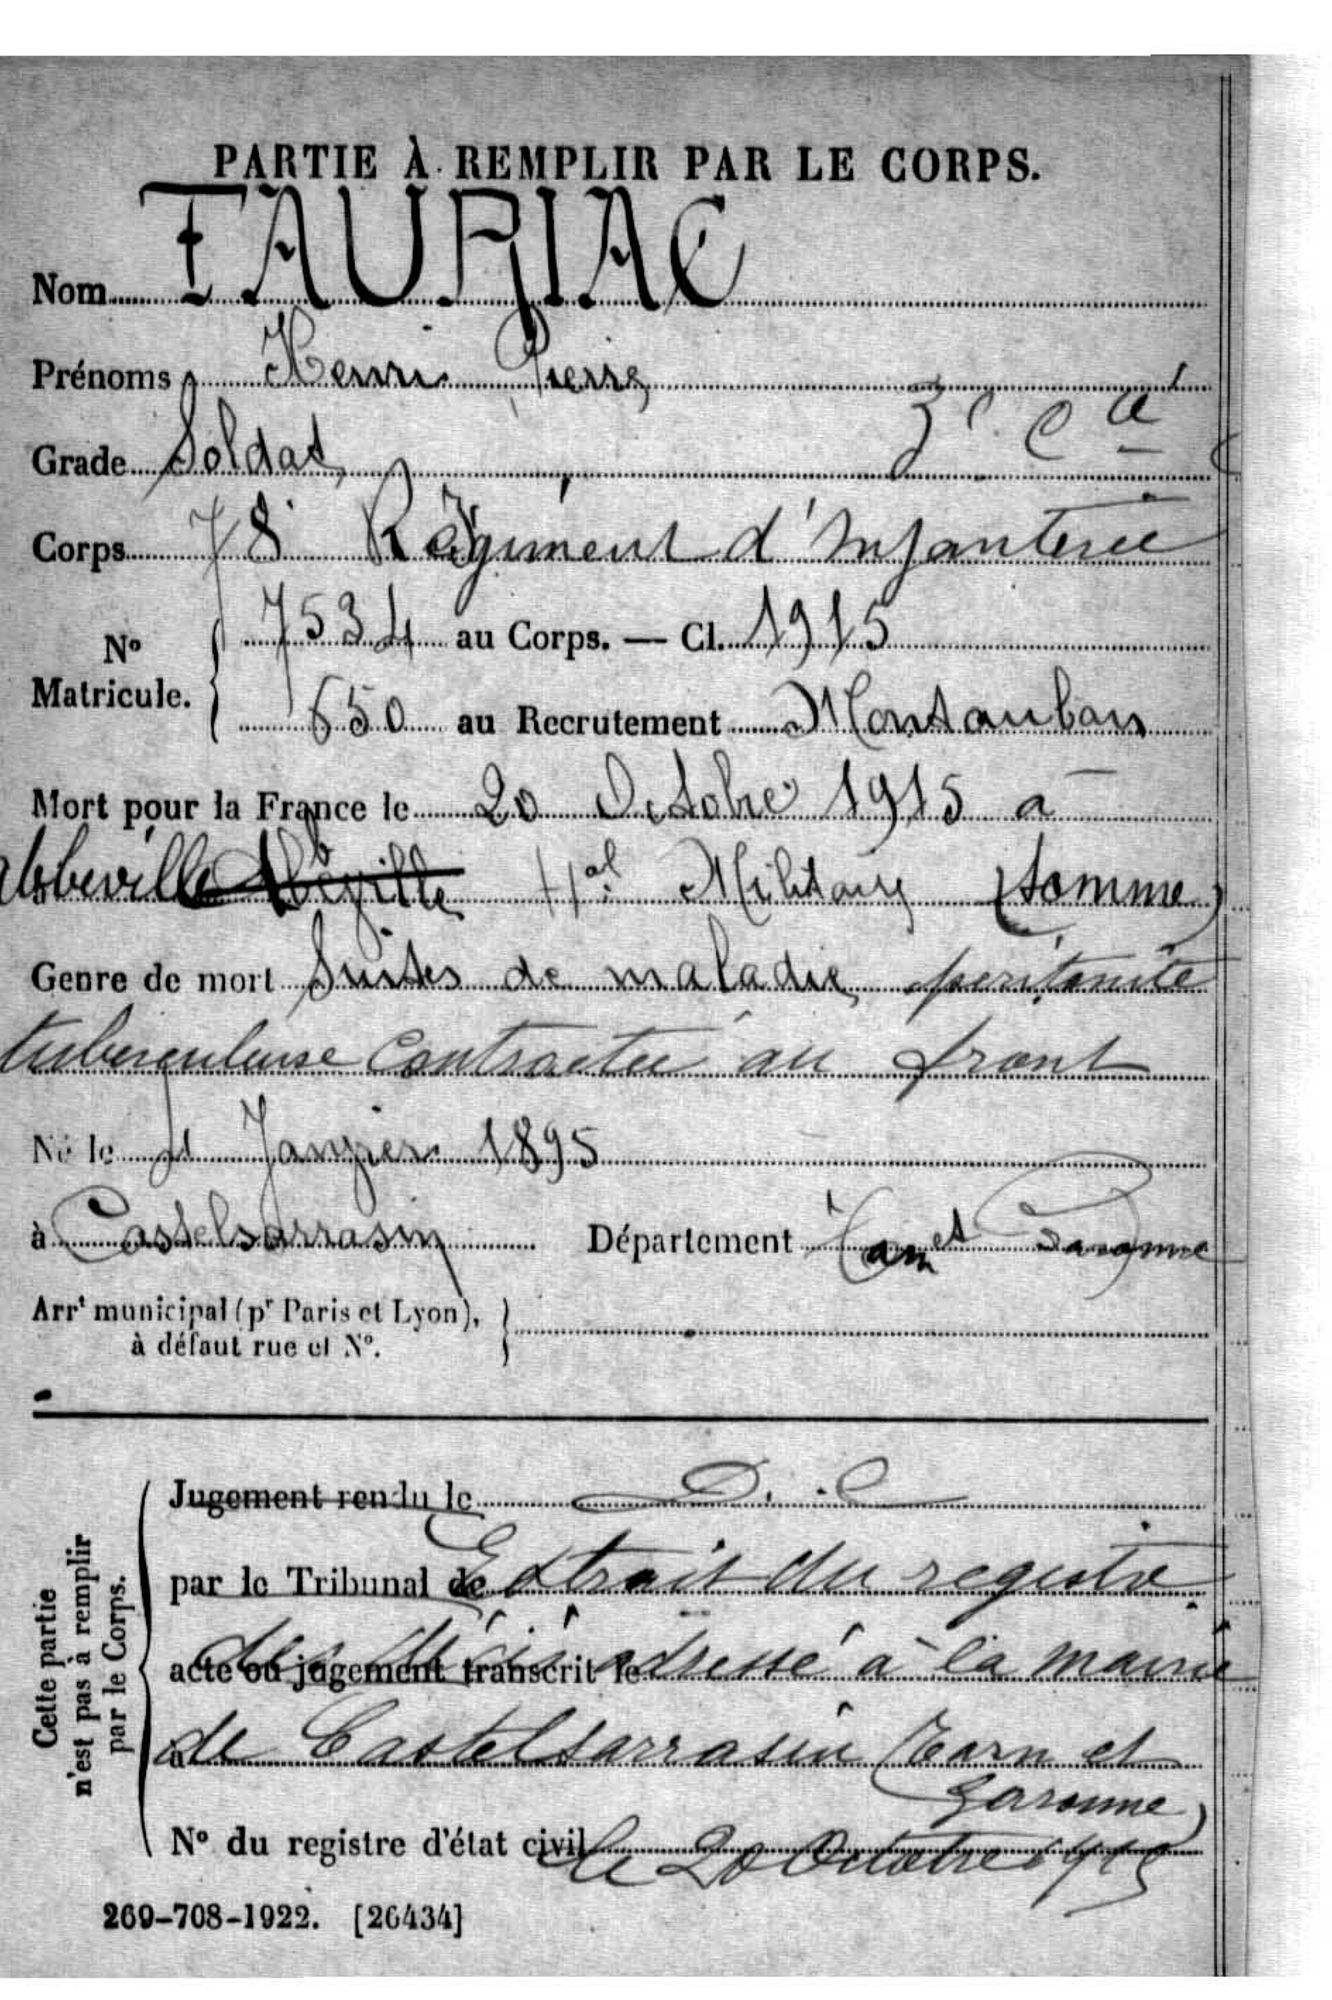 PARTIE À REMPLIR PAR LE CORPS.
Nom FAURIAC
Prénoms Henri Pierre
Grade Soldat 3e Cie
Corps 78e Régiment d'Infanterie
No Matricule. 7534 au Corps. — Cl. 1915
650 au Recrutement Montauban
Mort pour la France le 20 Octobre 1915 à
Abbeville Abbeville Hal Militaire (Somme)
Genre de mort Suites de maladie péritonite
tuberculeuse contractée au front
Né le Janvier 1895
à Castelsarrasin Département Tarn et Garonne
Arrt municipal (pr Paris et Lyon),
à défaut rue et No.
Cette partie
n'est pas à remplir
par le Corps.
Jugement rendu le
par le Tribunal de Extrait du registre
acte ou jugement transcrit le des décès adressé à la mairie
à de Castelsarrasin (Tarn et
Garonne)
No du registre d'état civil le 20 Octobre 1915
269-708-1922. [26434]